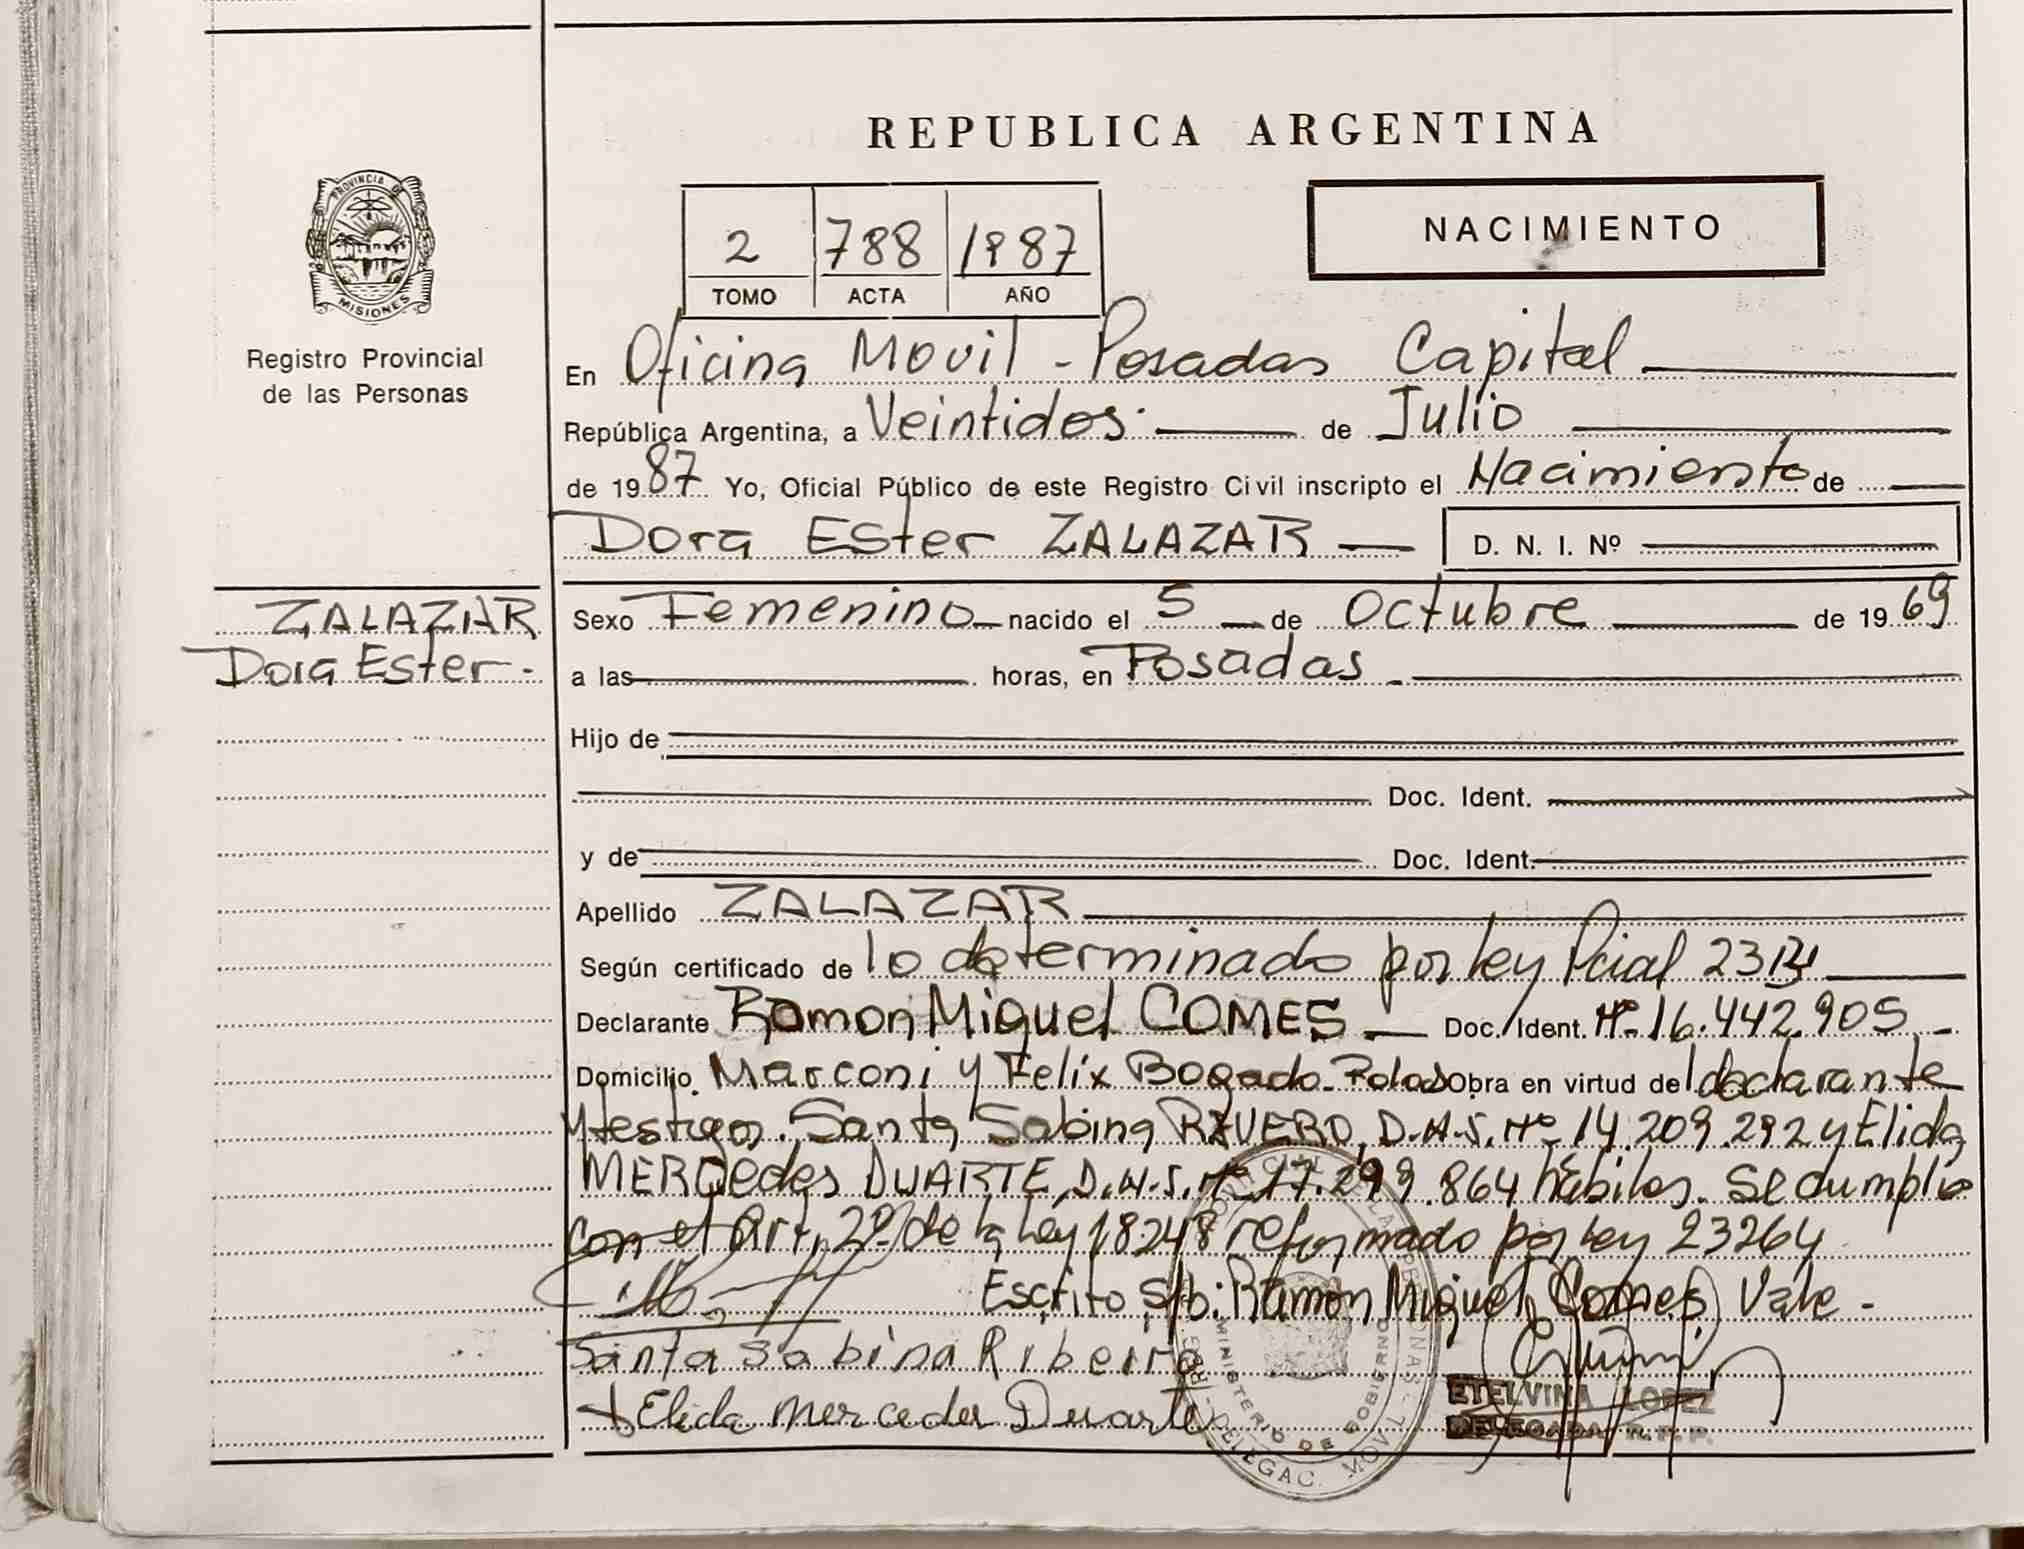 REPUBLICA ARGENTINA
PROVINCIA DE
MISIONES
Registro Provincial
de las Personas
2 788 1987
TOMO ACTA AÑO
NACIMIENTO
En Oficina Movil - Posadas Capital
República Argentina, a Veintidos de Julio
de 1987 Yo, Oficial Público de este Registro Civil inscripto el Nacimiento de
Dora Ester ZALAZAR D. N. I. Nº
ZALAZAR
Dora Ester.
Sexo Femenino nacido el 5 de Octubre de 1969
a las horas, en Posadas
Hijo de
Doc. Ident.
y de Doc. Ident.
Apellido ZALAZAR
Según certificado de lo determinado por Ley Pcial
Declarante Ramon Miguel COMES Doc. Ident. Nº 16.442.905
Domicilio Marconi y Felix Bogado Obra en virtud del declarante
y testigos. Santa Sabina RIVERO D.N.I. Nº 14.209.292 y Elida
MERCedes DUARTE D.N.I. Nº 17.299.864 hábiles. Se cumplio
con el Art. 2º de la Ley 18248 reformado por Ley 23264
Escrito s/b: Ramon Miguel Comes Vale.
Santa Sabina Ribeiro
Elida Mercedes Duarte
ETELVINA LOPEZ
DELEGADA R.P.P.
MINISTERIO DE GOBIERNO
DELEGAC. MOVIL